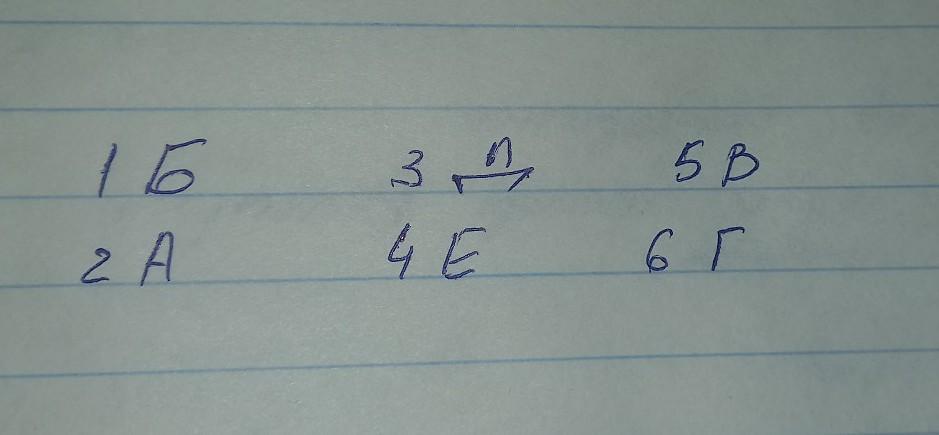 1 Б 3 Д 5 В
2 А 4 Е 6 Г